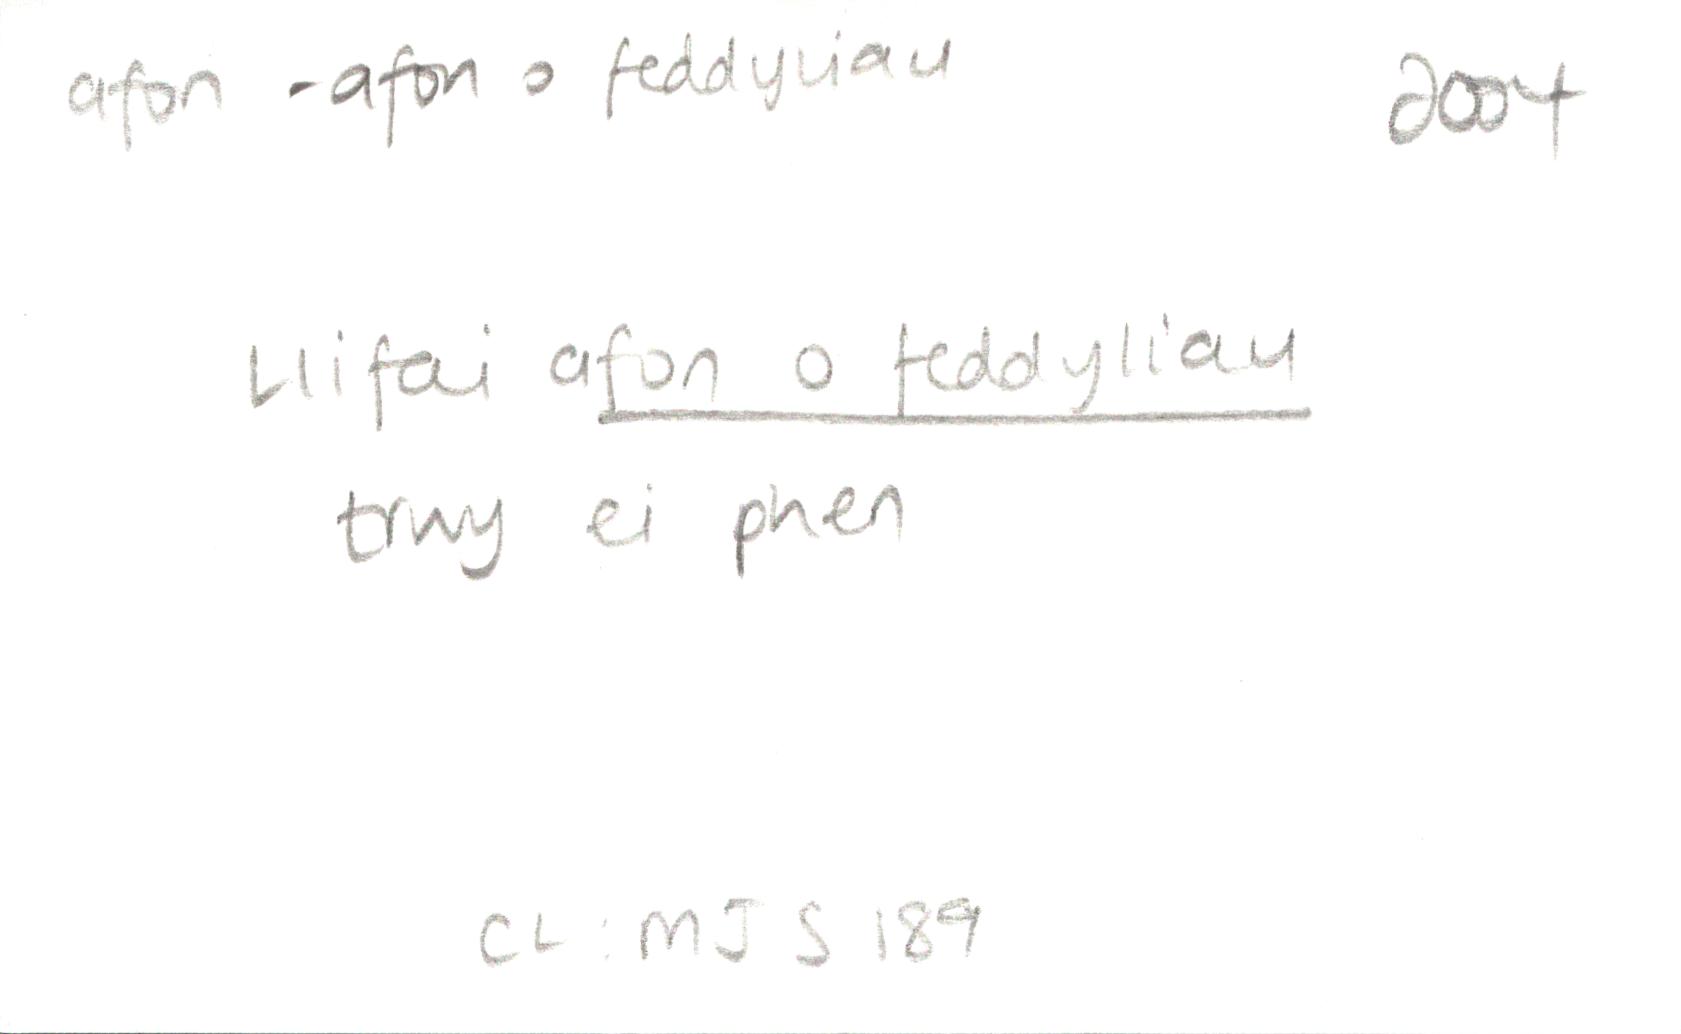 afon - afon o feddyliau 2004
Llifai afon o feddyliau
trwy ei phen
CL: MJS 189